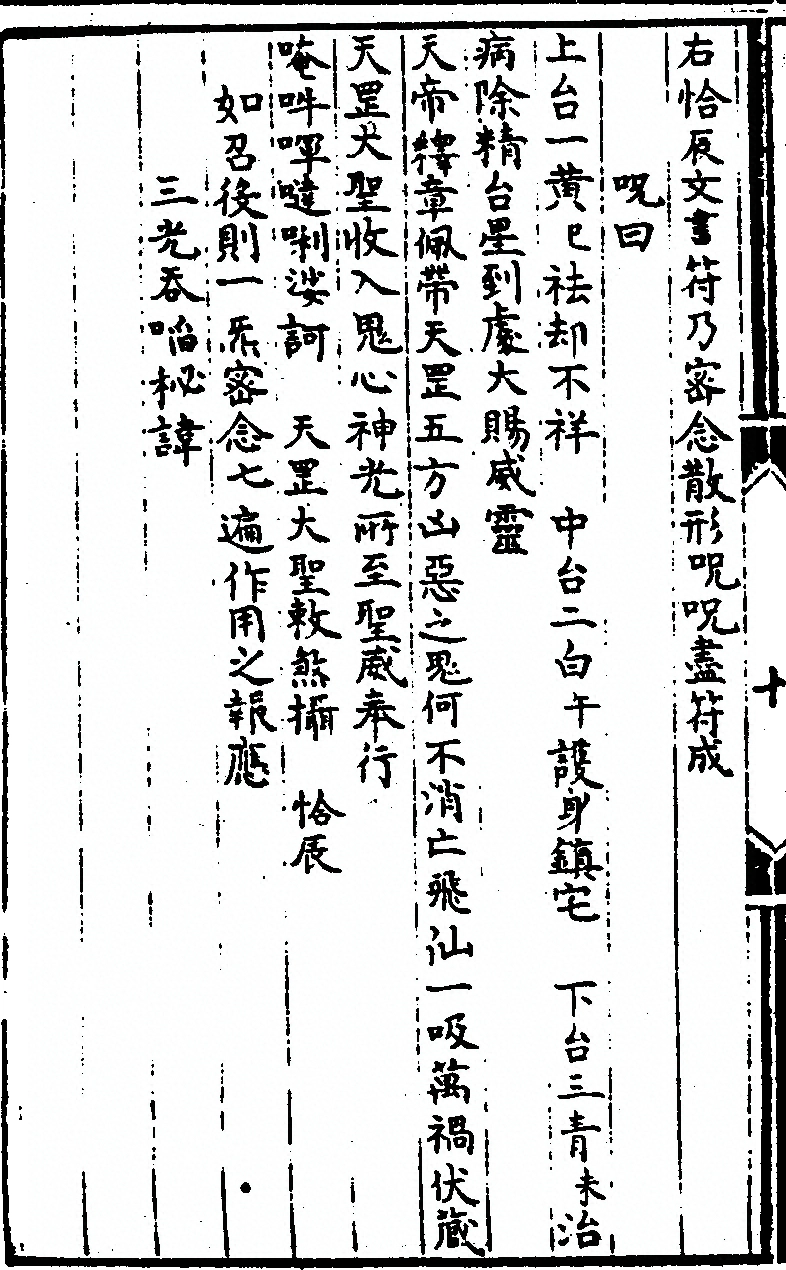 右恰辰文書符乃密念散形呪呪盡符成
呪曰
上台一黄巳祛却不祥 中台二白午護身鎮宅 下台三青未治
病除精台星到處大賜威靈
天帝釋章佩帶天罡五方凶惡之鬼何不消亡飛汕一吸萬禍伏藏
天罡大聖收入鬼心神光所至聖威奉行
唵吽㖞噠唎娑訶 天罡大聖敕煞攝 恰辰
如召後則一炁密念七遍作用之報應
三光吞啗秘諱
十